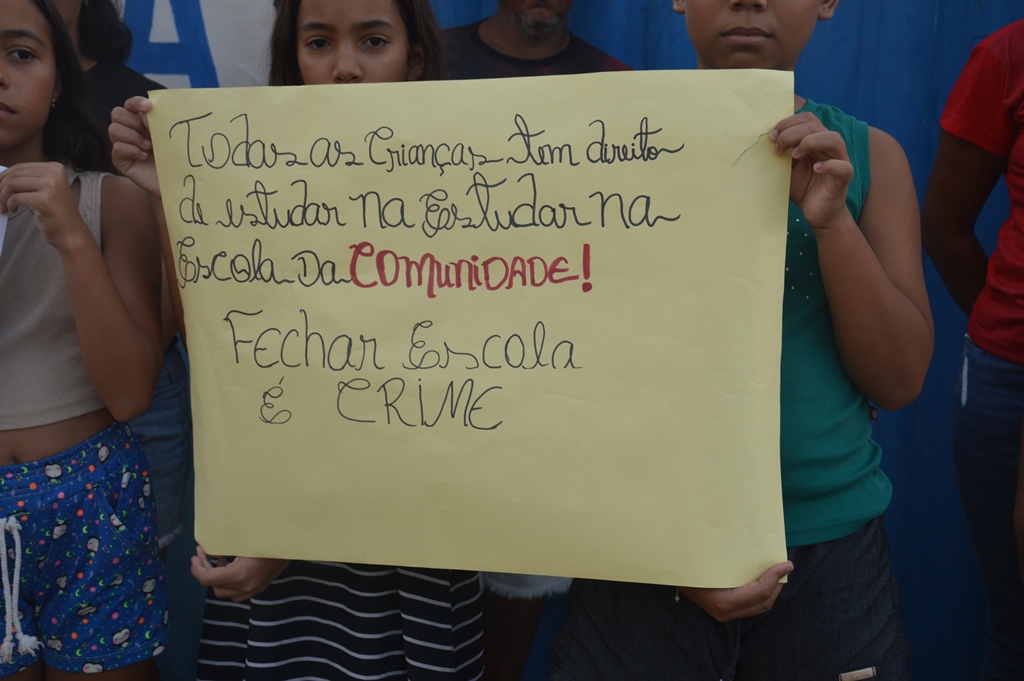 A
Todas as Crianças tem direito
de estudar na Estudar na
Escola Da COMUNIDADE!
Fechar Escola
É CRIME